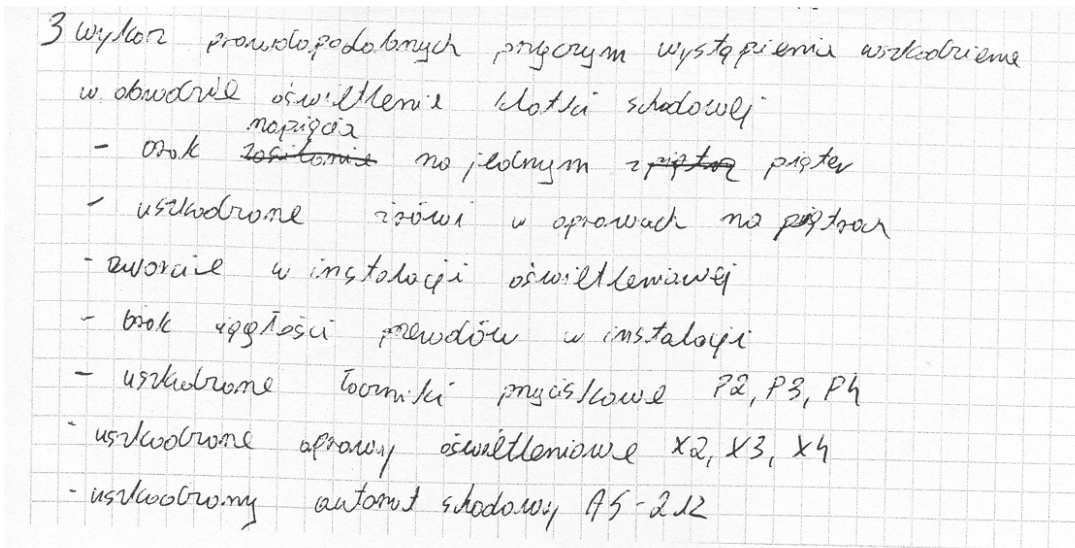 3 wykaz prawdopodobnych przyczym wystąpienia uszkodzenia
w obwodzie oświetlenie klatki schodowej
napięcia
- brak zasilania na jednym z piętra pięter
- uszkodzone żarówki w oprawach na piętrach
- zwarcie w instalacji oświetleniowej
- brak ciągłości przewodów w instalacji
- uszkodzone łączniki przyciskowe P2, P3, P4
- uszkodzone oprawy oświetleniowe X2, X3, X4
- uszkodzony automat schodowy AS-212